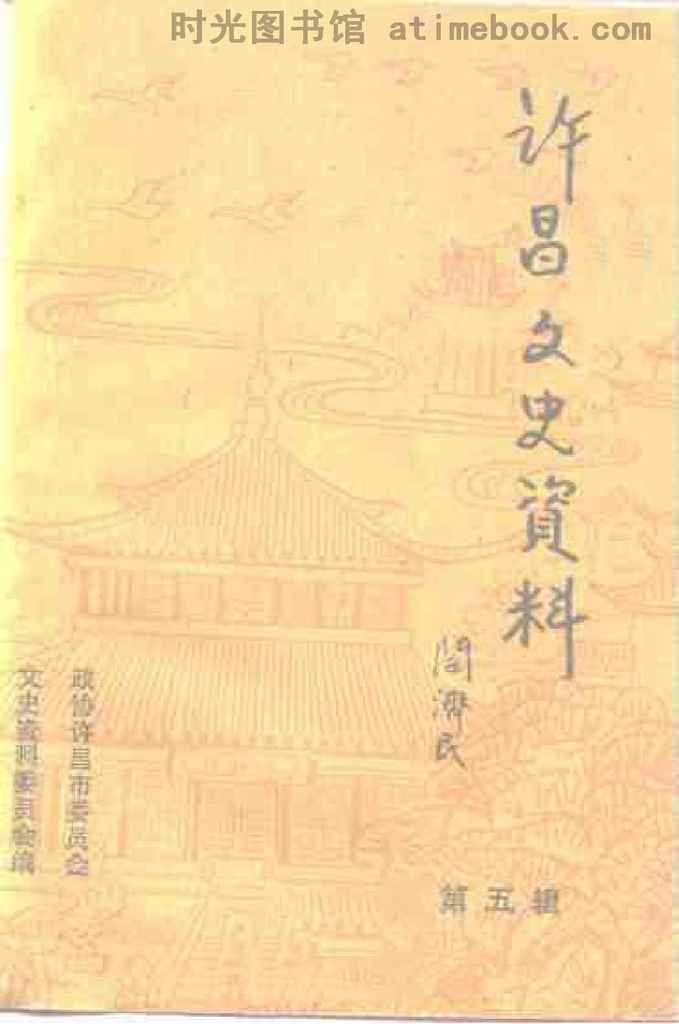 时光图书馆 atimebook.com
许昌文史資料
阎濟民
政协许昌市委员会
文史资料委员会编
第五辑